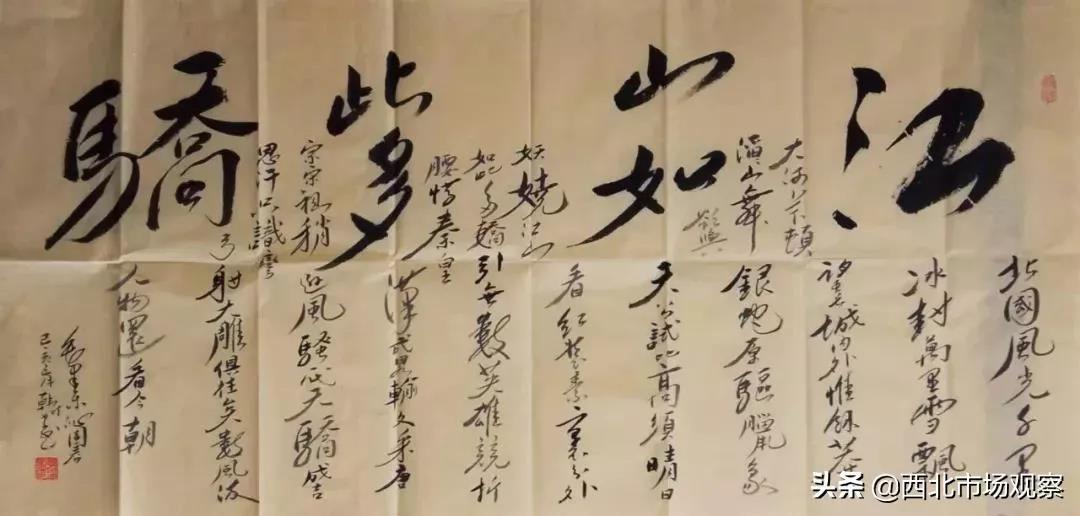 江山如此多驕
北國風光千里
冰封萬里雪飄
望長城内外惟餘莽
大河上下頓
滔山舞
銀蛇原驅臘象
欲與
天公試比高須晴日
看紅裝素裹分外
妖嬈江山
如此多嬌引無數英雄競折
腰惜秦皇
漢武略輸文采唐
宗宋祖稍
遜風騷一代天驕成吉
思汗只識彎
弓射大雕俱往矣數風流
人物還看今朝
毛澤東沁園春
己亥年韓
头条 @西北市场观察